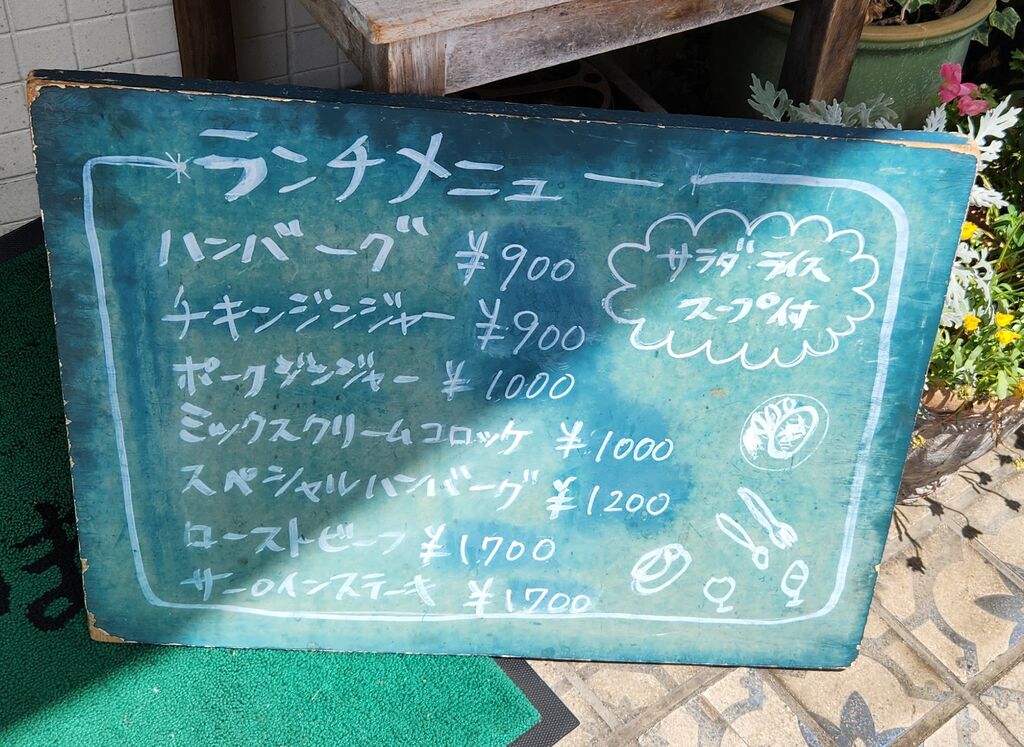 ランチメニュー
ハンバーグ ¥900
チキンジンジャー ¥900
ポークジンジャー ¥1000
ミックスクリームコロッケ ¥1000
スペシャルハンバーグ ¥1200
ローストビーフ ¥1,700
サーロインステーキ ¥1700
サラダ・ライス
スープ付